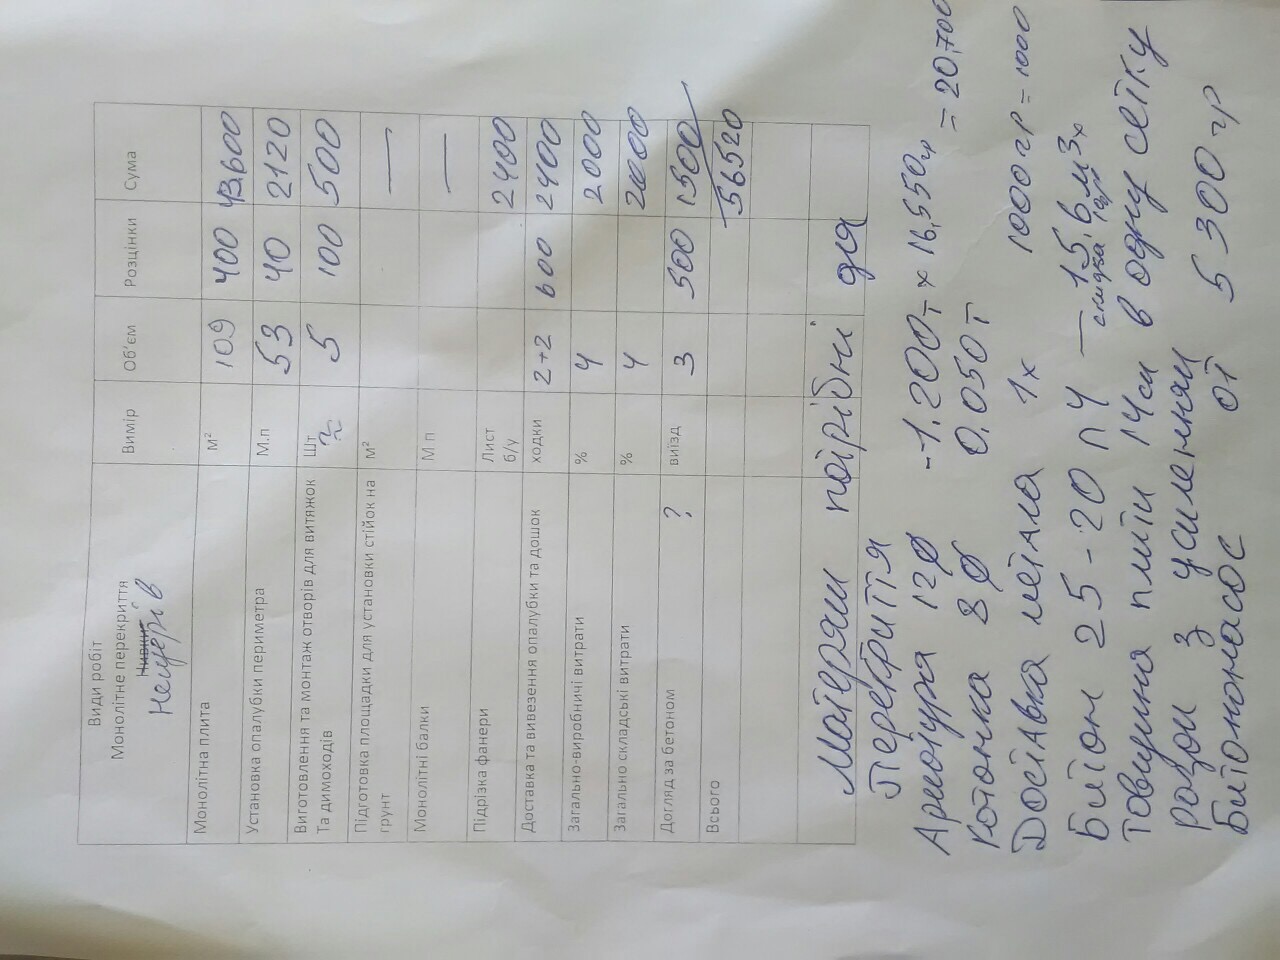 Види робіт Вимір Об'єм Розцінки Сума
Монолітне перекриття
Нивки
Нещерів
Монолітна плита м² 109 400 43600
Установка опалубки периметра М.п 53 40 2120
Виготовлення та монтаж отворів для витяжок Шт 5 100 500
Та димоходів
Підготовка площадки для установки стійок на м² —
грунт
Монолітні балки М п —
Підрізка фанери Лист 2400
б/у
Доставка та вивезення опалубки та дошок ходки 2+2 600 2400
Загально-виробничі витрати % 4 2000
Загально складські витрати % 4 2000
Догляд за бетоном ? виїзд 3 500 1500
Всього 56520
Матеріяли потрібні для
Перекриття
Арматура 12∅ -1.200т x 16,550гр = 20,700
Котонка 8∅ 0,050т
Доставка метала 1х 1000гр = 1000
Битон 25-20 п4 — 15,6м3х
скидка
Товщина плити 14см в одну сетку
роздом з усиленням
Битононасос от 5300 гр